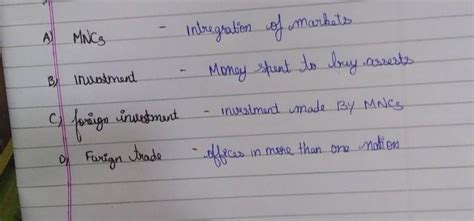 A) MNCs - Intregration of markets
B) Investment - Money spent to buy assests
C) foreign investment - investment made By MNCs
D) Farign trade - offices in more than one nation